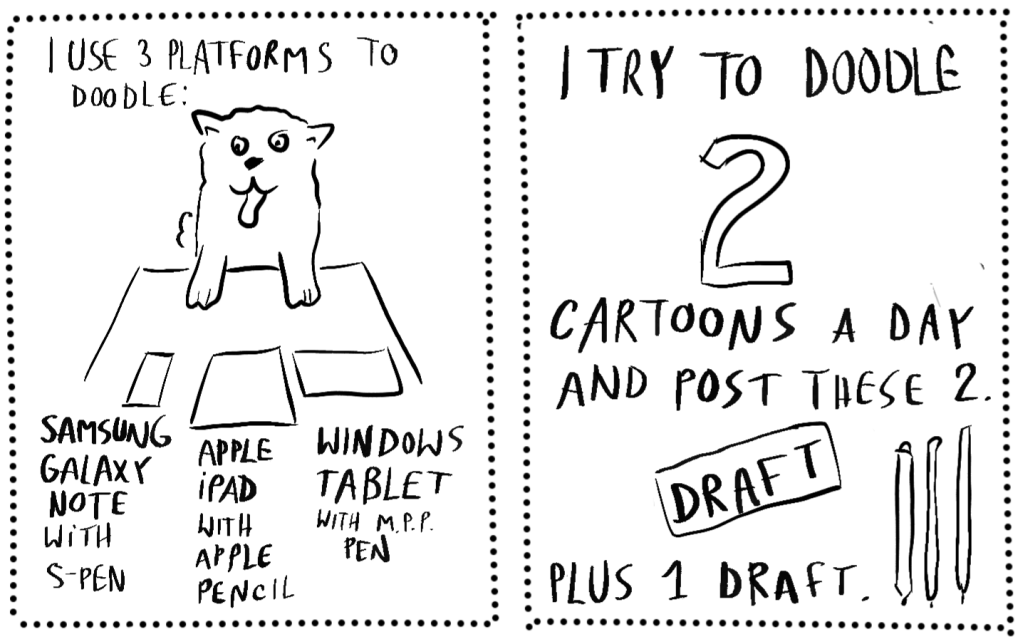 I USE 3 PLATFORMS TO
DOODLE:
SAMSUNG
GALAXY
NOTE
WITH
S-PEN
APPLE
iPAD
WITH
APPLE
PENCIL
WINDOWS
TABLET
WITH M.P.P.
PEN
I TRY TO DOODLE
2
CARTOONS A DAY
AND POST THESE 2.
DRAFT
PLUS 1 DRAFT.